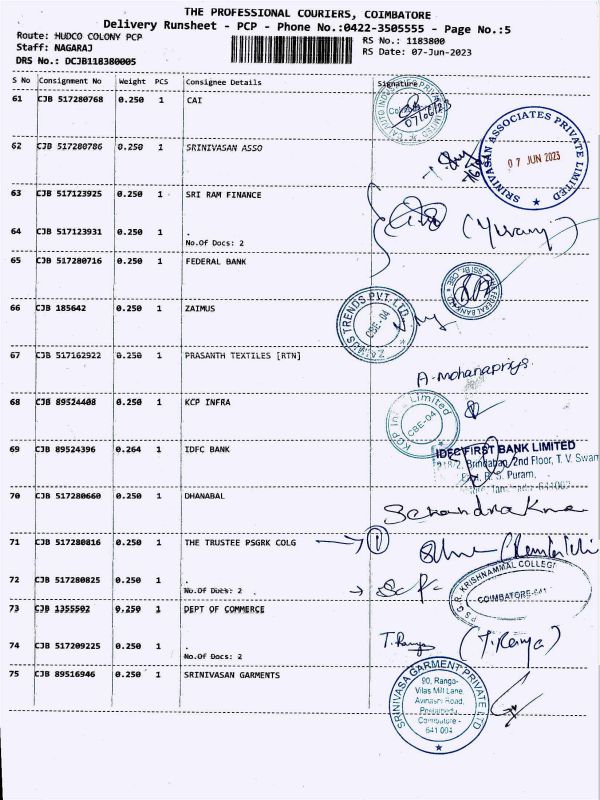 THE PROFESSIONAL COURIERS, COIMBATORE
Delivery Runsheet - PCP - Phone No.:0422-3505555 - Page No.:5
Route: HUDCO COLONY PCP
RS No.: 1183800
Staff: NAGARAJ
RS Date: 07-Jun-2023
DRS No.: DCJB118380005
S No Consignment No Weight PCS Consignee Details Signature
61 CJB 517280768 0.250 1 CAI
07/06/23
62 CJB 517280786 0.250 1 SRINIVASAN ASSO
SRINIVASAN ASSOCIATES PRIVATE LIMITED
07 JUN 2023
63 CJB 517123925 0.250 1 SRI RAM FINANCE
64 CJB 517123931 0.250 1 .
No.Of Docs: 2
65 CJB 517280716 0.250 1 FEDERAL BANK
66 CJB 185642 0.250 1 ZAIMUS
ZAIMUS TRENDS PVT. LTD.
CBE-04
67 CJB 517162922 0.250 1 PRASANTH TEXTILES [RTN]
A. Mohanapriya
68 CJB 89524408 0.250 1 KCP INFRA
KCP Infra Limited
CBE-04
69 CJB 89524396 0.264 1 IDFC BANK
IDFC FIRST BANK LIMITED
Brindaban, 2nd Floor, T. V. Swam
R. S. Puram,
70 CJB 517280660 0.250 1 DHANABAL
71 CJB 517280816 0.250 1 THE TRUSTEE PSGRK COLG
1
72 CJB 517280825 0.250 1 .
No.Of Docs: 2
P S G R KRISHNAMMAL COLLEGE
COIMBATORE-641
73 CJB 1355502 0.250 1 DEPT OF COMMERCE
T. Ranga
74 CJB 517209225 0.250 1 .
No.Of Docs: 2
75 CJB 89516946 0.250 1 SRINIVASAN GARMENTS
SRINIVASA GARMENT PRIVATE LTD
90, Ranga-
Vilas Mill Lane,
Avinashi Road,
Peelamedu,
Coimbatore -
641 004